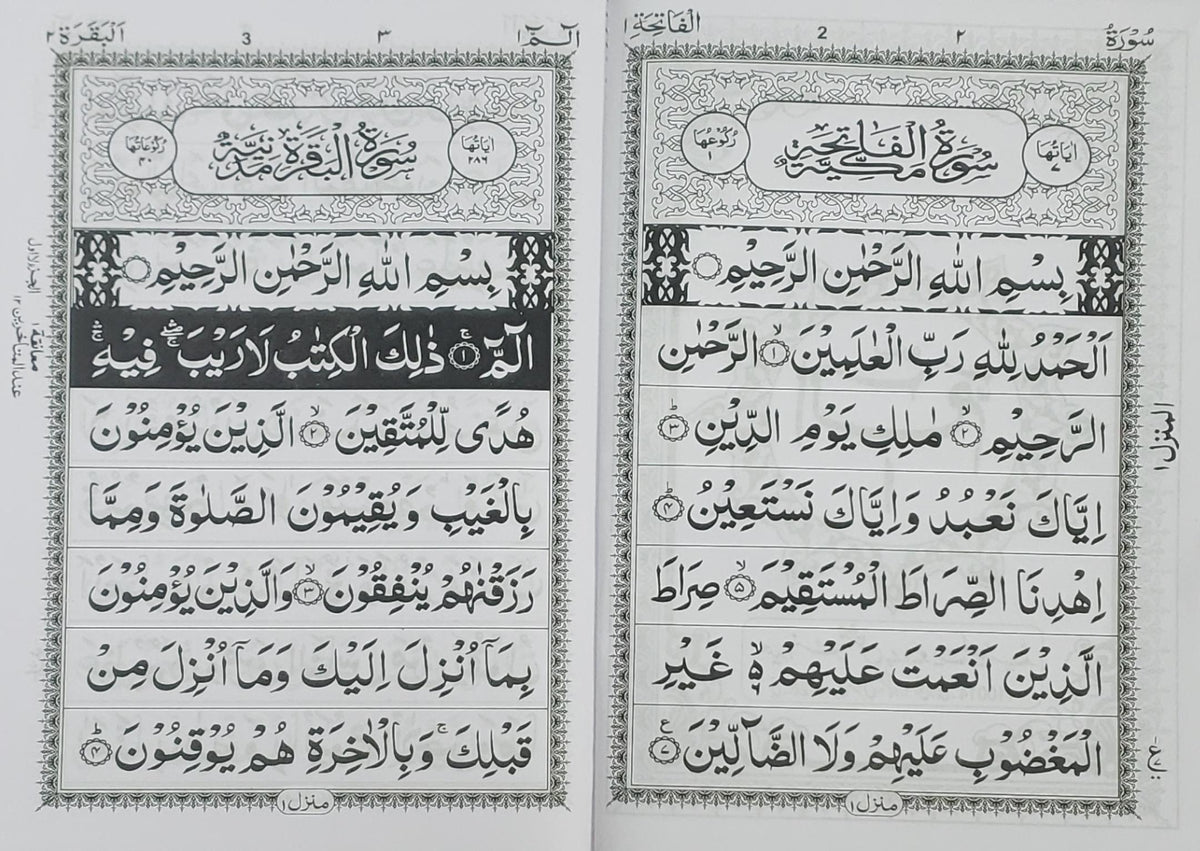 سُوْرَةُ ٢ 2 اَلْفَاتِحَةِ ١
اٰيَاتُهَا ٧
سُوْرَةُ الْفَاتِحَةِ مَكِّيَّةٌ
رُكُوْعُهَا ١
بِسْمِ اللهِ الرَّحْمٰنِ الرَّحِيْمِ
اَلْحَمْدُ لِلّٰهِ رَبِّ الْعٰلَمِيْنَ ۙ﴿١﴾ الرَّحْمٰنِ
الرَّحِيْمِ ۙ﴿٢﴾ مٰلِكِ يَوْمِ الدِّيْنِ ؕ﴿٣﴾
اِيَّاكَ نَعْبُدُ وَاِيَّاكَ نَسْتَعِيْنُ ؕ﴿٤﴾
اِهْدِنَا الصِّرَاطَ الْمُسْتَقِيْمَ ۙ﴿٥﴾ صِرَاطَ
الَّذِيْنَ اَنْعَمْتَ عَلَيْهِمْ ۙ۬ غَيْرِ
الْمَغْضُوْبِ عَلَيْهِمْ وَلَا الضَّآلِّيْنَ ﴿٧﴾ ع
منزل ١
المنزل ١
الٓمّٓ ١ ٣ 3 اَلْبَقَرَة ٢
اٰيَاتُهَا ٢٨٦
سُوْرَةُ الْبَقَرَةِ مَدَنِيَّةٌ
رُكُوْعَاتُهَا ٤٠
بِسْمِ اللهِ الرَّحْمٰنِ الرَّحِيْمِ
الٓمّٓ ۚ﴿١﴾ ذٰلِكَ الْكِتٰبُ لَا رَيْبَ ۛۚۖ فِيْهِ ۛۚ
هُدًى لِّلْمُتَّقِيْنَ ۙ﴿٢﴾ الَّذِيْنَ يُؤْمِنُوْنَ
بِالْغَيْبِ وَيُقِيْمُوْنَ الصَّلٰوةَ وَمِمَّا
رَزَقْنٰهُمْ يُنْفِقُوْنَ ۙ﴿٣﴾ وَالَّذِيْنَ يُؤْمِنُوْنَ
بِمَآ اُنْزِلَ اِلَيْكَ وَمَآ اُنْزِلَ مِنْ
قَبْلِكَ ۚ وَبِالْاٰخِرَةِ هُمْ يُوْقِنُوْنَ ؕ﴿٤﴾
منزل ١
الجزء الاول
معانقة ١
عند المتأخرين ١٢